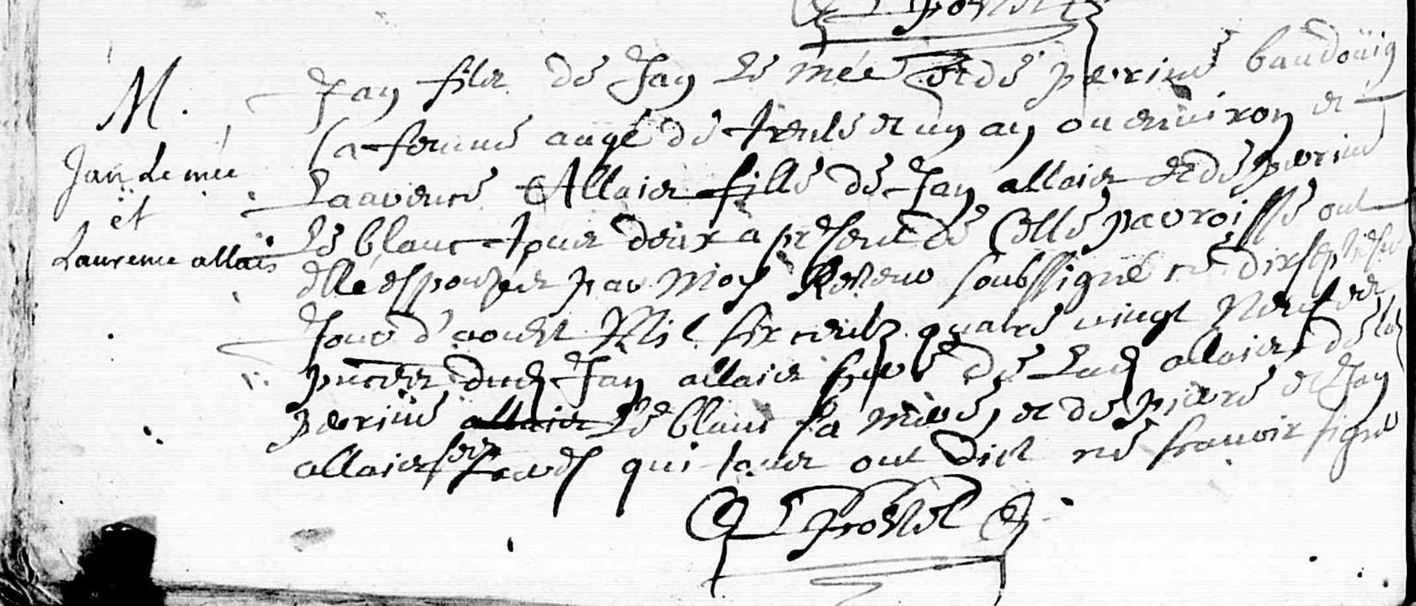 M.
Jan le mée
et
Laurence allais
Jan filz de Jan le mée et de perrine baudouin
sa femme aagé de trente et un an ou environ et
Laurence Allaire fille de Jan allaire et de perrine
le blanc tous deux a present de cette parroisse ont
esté espousez par moy Recteur soubssigné ce dixseptiesme
Jour d'aoust Mil six centz quatre vingt neuf en
presence dud Jan allaire pere de lad allaire, de lad
perrine allaire le blanc sa mere, et de pierre et Jan
allaire ses freres qui tous ont dict ne scavoir signer